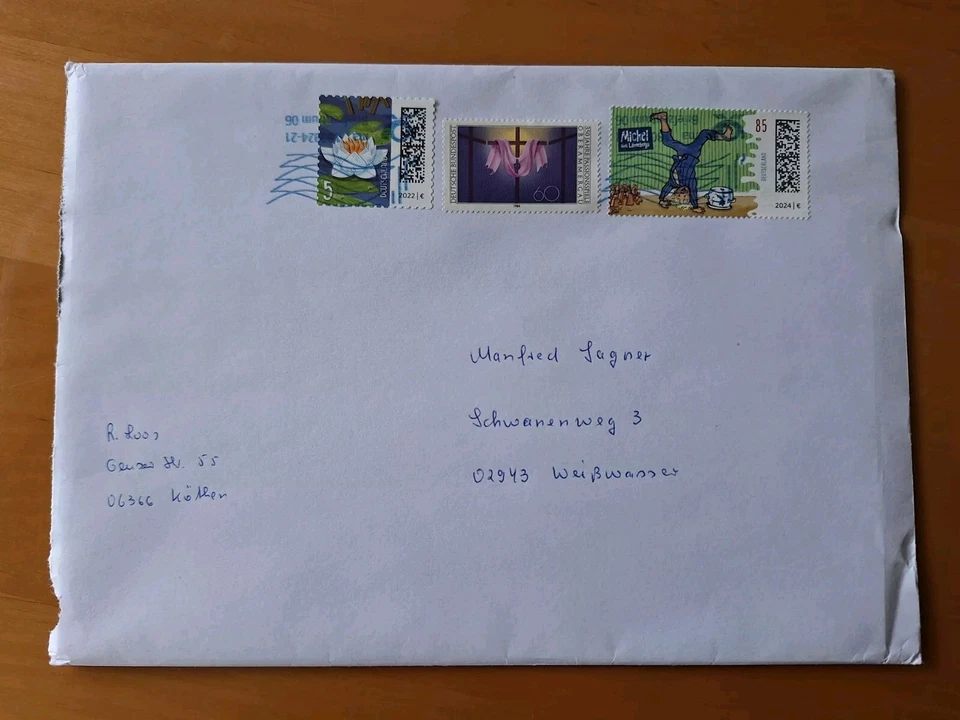 5
2022 | €
DEUTSCHE BUNDESPOST
60
Michel
aus Lönneberga
85
2024 | €
Manfred Sagner
Schwanenweg 3
02943 Weißwasser
R.
55
06366 Köthen